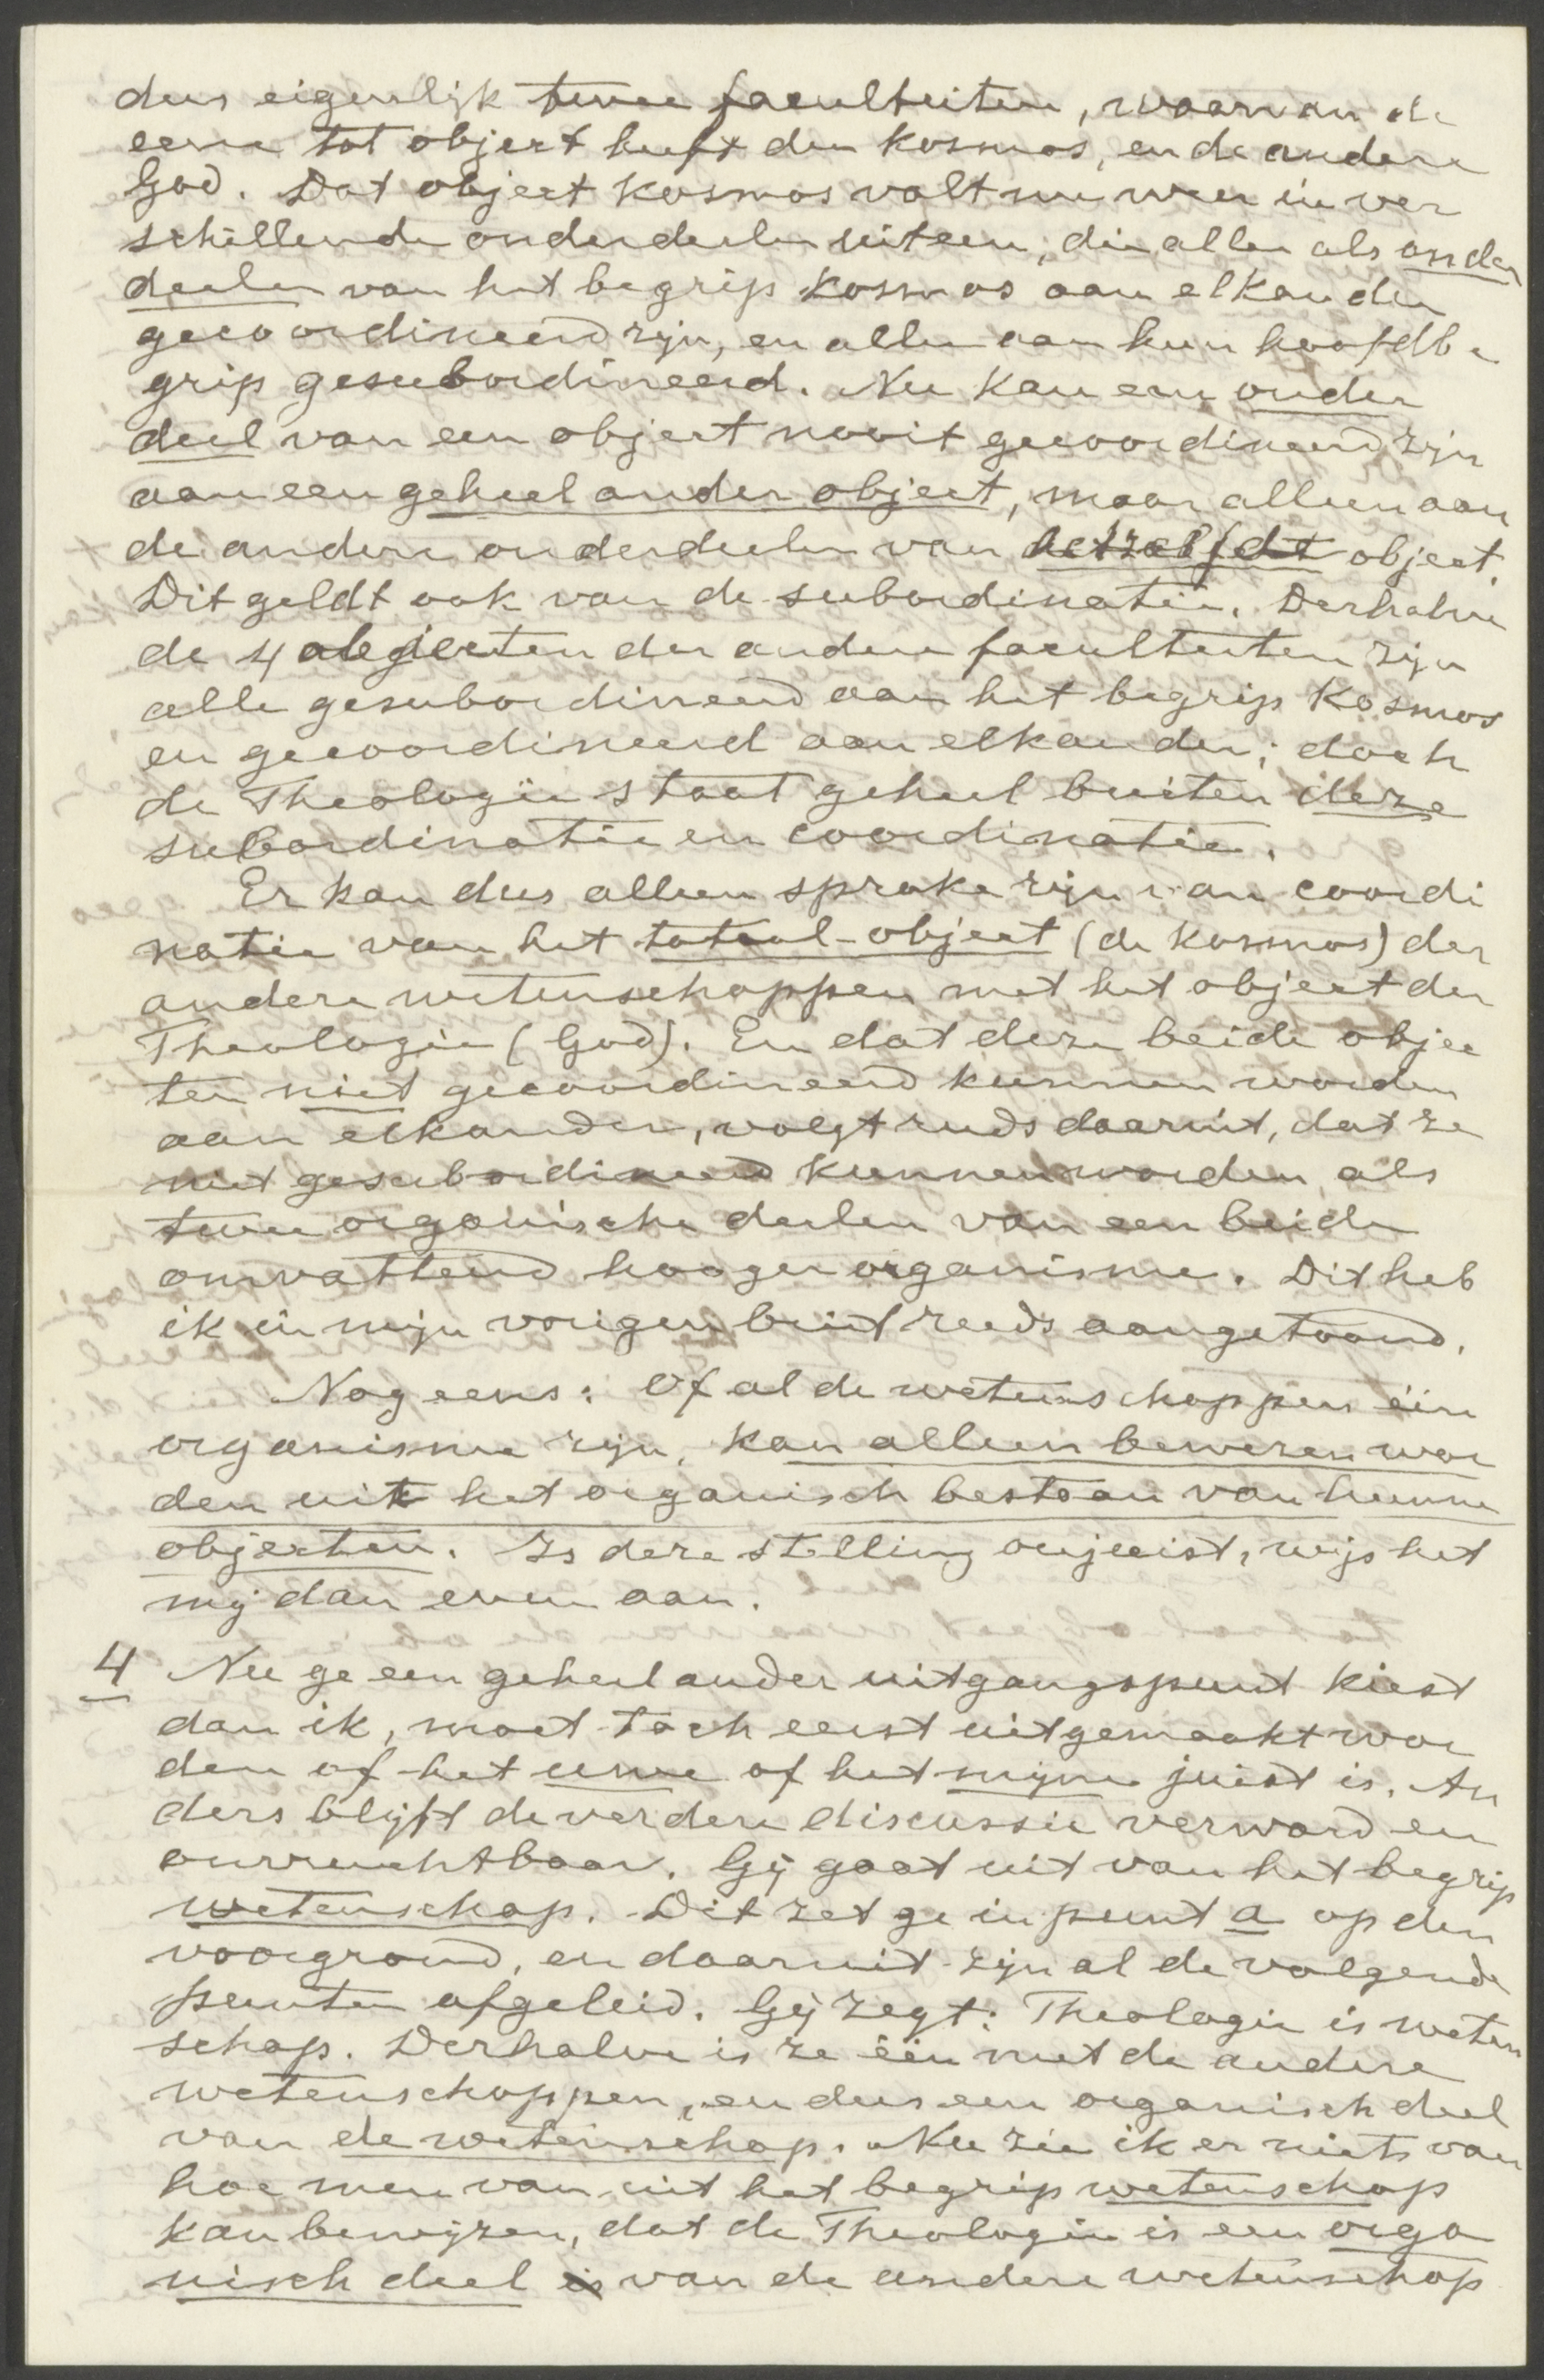 dus eigenlijk twee faculteiten, waarvan de
eene tot object heeft den Kosmos, en de andere
God. Dat object Kosmos valt nu weer in ver
schillende onderdeelen uiteen, die allen als onder
deelen van het begrip Kosmos aan elkander
gecoordineerd zijn, en allen aan hun hoofdbe
grip gesubordineerd. Nu kan een onder
deel van een object nooit gecoordineerd zijn
aan een geheel ander object, maar alleen aan
de andere onderdeelen van hetzelfde object.
Dit geldt ook van de subordinatie. Derhalve
de 4 objecten der andere faculteiten zijn
alle gesubordineerd aan het begrip Kosmos
en gecoordineerd aan elkander; doch
de Theologie staat geheel buiten deze
subordinatie en coordinatie.
Er kan dus alleen sprake zijn van coordi
natie van het totaal-object (de Kosmos) der
andere wetenschappen met het object der
Theologie (God). En dat deze beide objec
ten niet gecoordineerd kunnen worden
aan elkander, volgt reeds daaruit, dat ze
niet gesubordineerd kunnen worden als
twee organische deelen van een beide
omvattend hooger organisme. Dit heb
ik in mijn vorigen brief reeds aangetoond.
Nog eens: Of al de wetenschappen één
organisme zijn, kan alleen bewezen wor
den uit het organisch bestaan van hunne
objecten. Is deze stelling onjuist, wijs het
mij dan even aan.
4 Nu ge een geheel ander uitgangspunt kiest
dan ik, moet toch eerst uitgemaakt wor
den of het uwe of het mijne juist is. An
ders blijft de verdere discussie verward en
onvruchtbaar. Gij gaat uit van het begrip
wetenschap. Dit zet ge in punt a op den
voorgrond, en daaruit zijn al de volgende
punten afgeleid. Gij zegt: Theologie is weten
schap. Derhalve is ze één met de andere
wetenschappen, en dus een organisch deel
van de wetenschap. Nu zie ik er niets van
hoe men van uit het begrip wetenschap
kan bewijzen, dat de Theologie is een orga
nisch deel is van de andere wetenschap